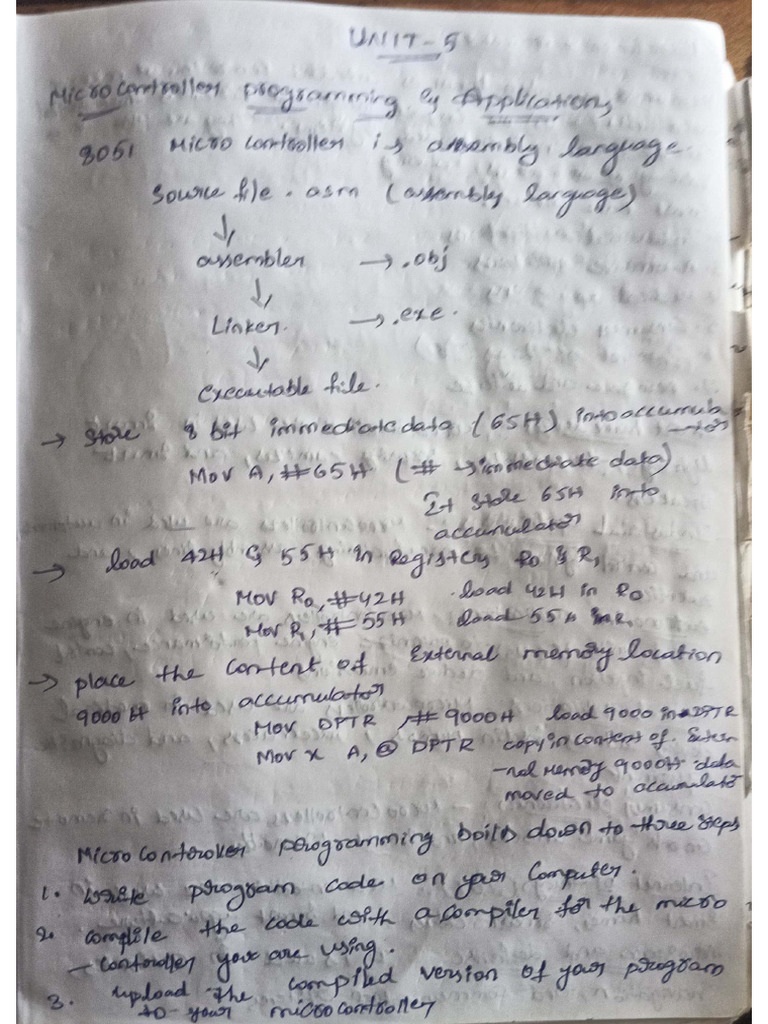 UNIT-5
Microcontroller programming & Applications
8051 Microcontroller is assembly language.
Source file . asm (assembly language)
↓
assembler → .obj
↓
Linker. → .exe.
↓
executable file.
→ Store 8 bit immediate data (65H) into accumula-
tor
Mov A, #65H (# → immediate data)
It store 65H into
accumulator
→ load 42H & 55H in Registers R0 & R1
Mov R0, #42H . load 42H in R0
Mov R1, #55H load 55H in R1
→ place the content of External memory location
9000H into accumulator
Mov DPTR, #9000H load 9000 in DPTR
Mov x A, @ DPTR copy in content of Exter
-nal Memory 9000H data
moved to accumulator
Microcontroller programming boils down to three steps
1. write program code on your Computer.
2. compile the code with a compiler for the micro
-controller you are using.
3. upload the compiled version of your program
to your microcontroller